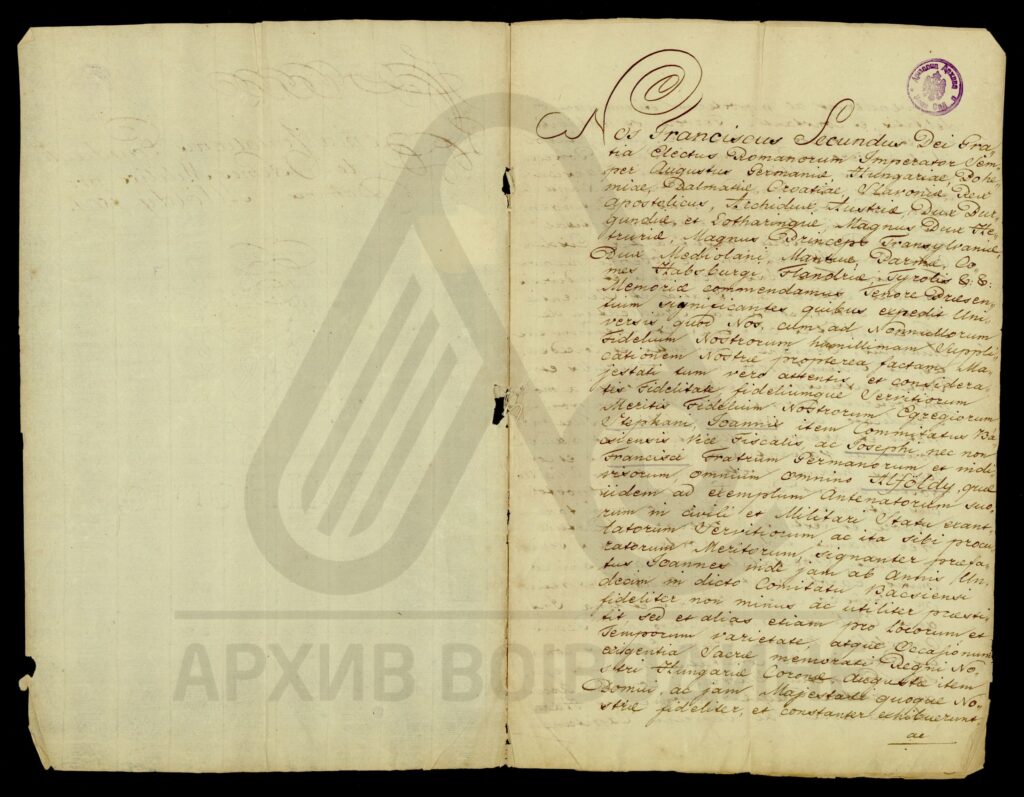 Nos Franciscus Secundus Dei Gra,
tia Electus Romanorum Imperator Sem,
per Augustus Germaniæ, Hungariæ, Bohe,
miæ, Dalmatiæ, Croatiæ, Slavoniæ Rex
Apostolicus, Archidux Austriæ, Dux Bur,
gundiæ, et Lotharingiæ, Magnus Dux He,
truriæ, Magnus Princeps Transylvaniæ,
Dux Mediolani, Mantuæ, Parmæ, Co,
mes Habsburgi, Flandriæ, Tyrolis &: &:
Memoriæ commendamus Tenore Præsen,
tium significantes, quibus expedit Uni,
versis, quod Nos, cum ad Nonnullorum
Fidelium Nostrorum humillimam Suppli,
cationem Nostræ propterea factam Ma,
jestati tum vero attentis, et considera,
tis Fidelitate, fideliumque Servitiorum
Meritis Fidelium Nostrorum Egregiorum
Stephani, Joannis item Commitatus Bá
csiensis Vice Fiscalis, ac Josephi, nec non
Francisci Fratrum Germanorum et indi
visorum, omnium omnino Alföldy, quæ
iidem ad exemplum Antenatorum suo,
rum in Civili et Militari Statu exant
latorum Servitiorum, ac ita sibi procu
ratorum Meritorum, signanter præfa,
tus Joannes inde jam ab Annis Un,
decim in dicto Comitatu Bácsiensi
fideliter non minus ac utiliter præsti
tit, sed et alias etiam pro Locorum et
Temporum varietate, atque Occasionum
exigentia Sacræ memorati Regni No,
stri Hungariæ Coronæ, Augustæ item
Domui, ac jam Majestati quoque No,
stræ fideliter, et constanter exhibuerunt
ac
АРХИВ ВО